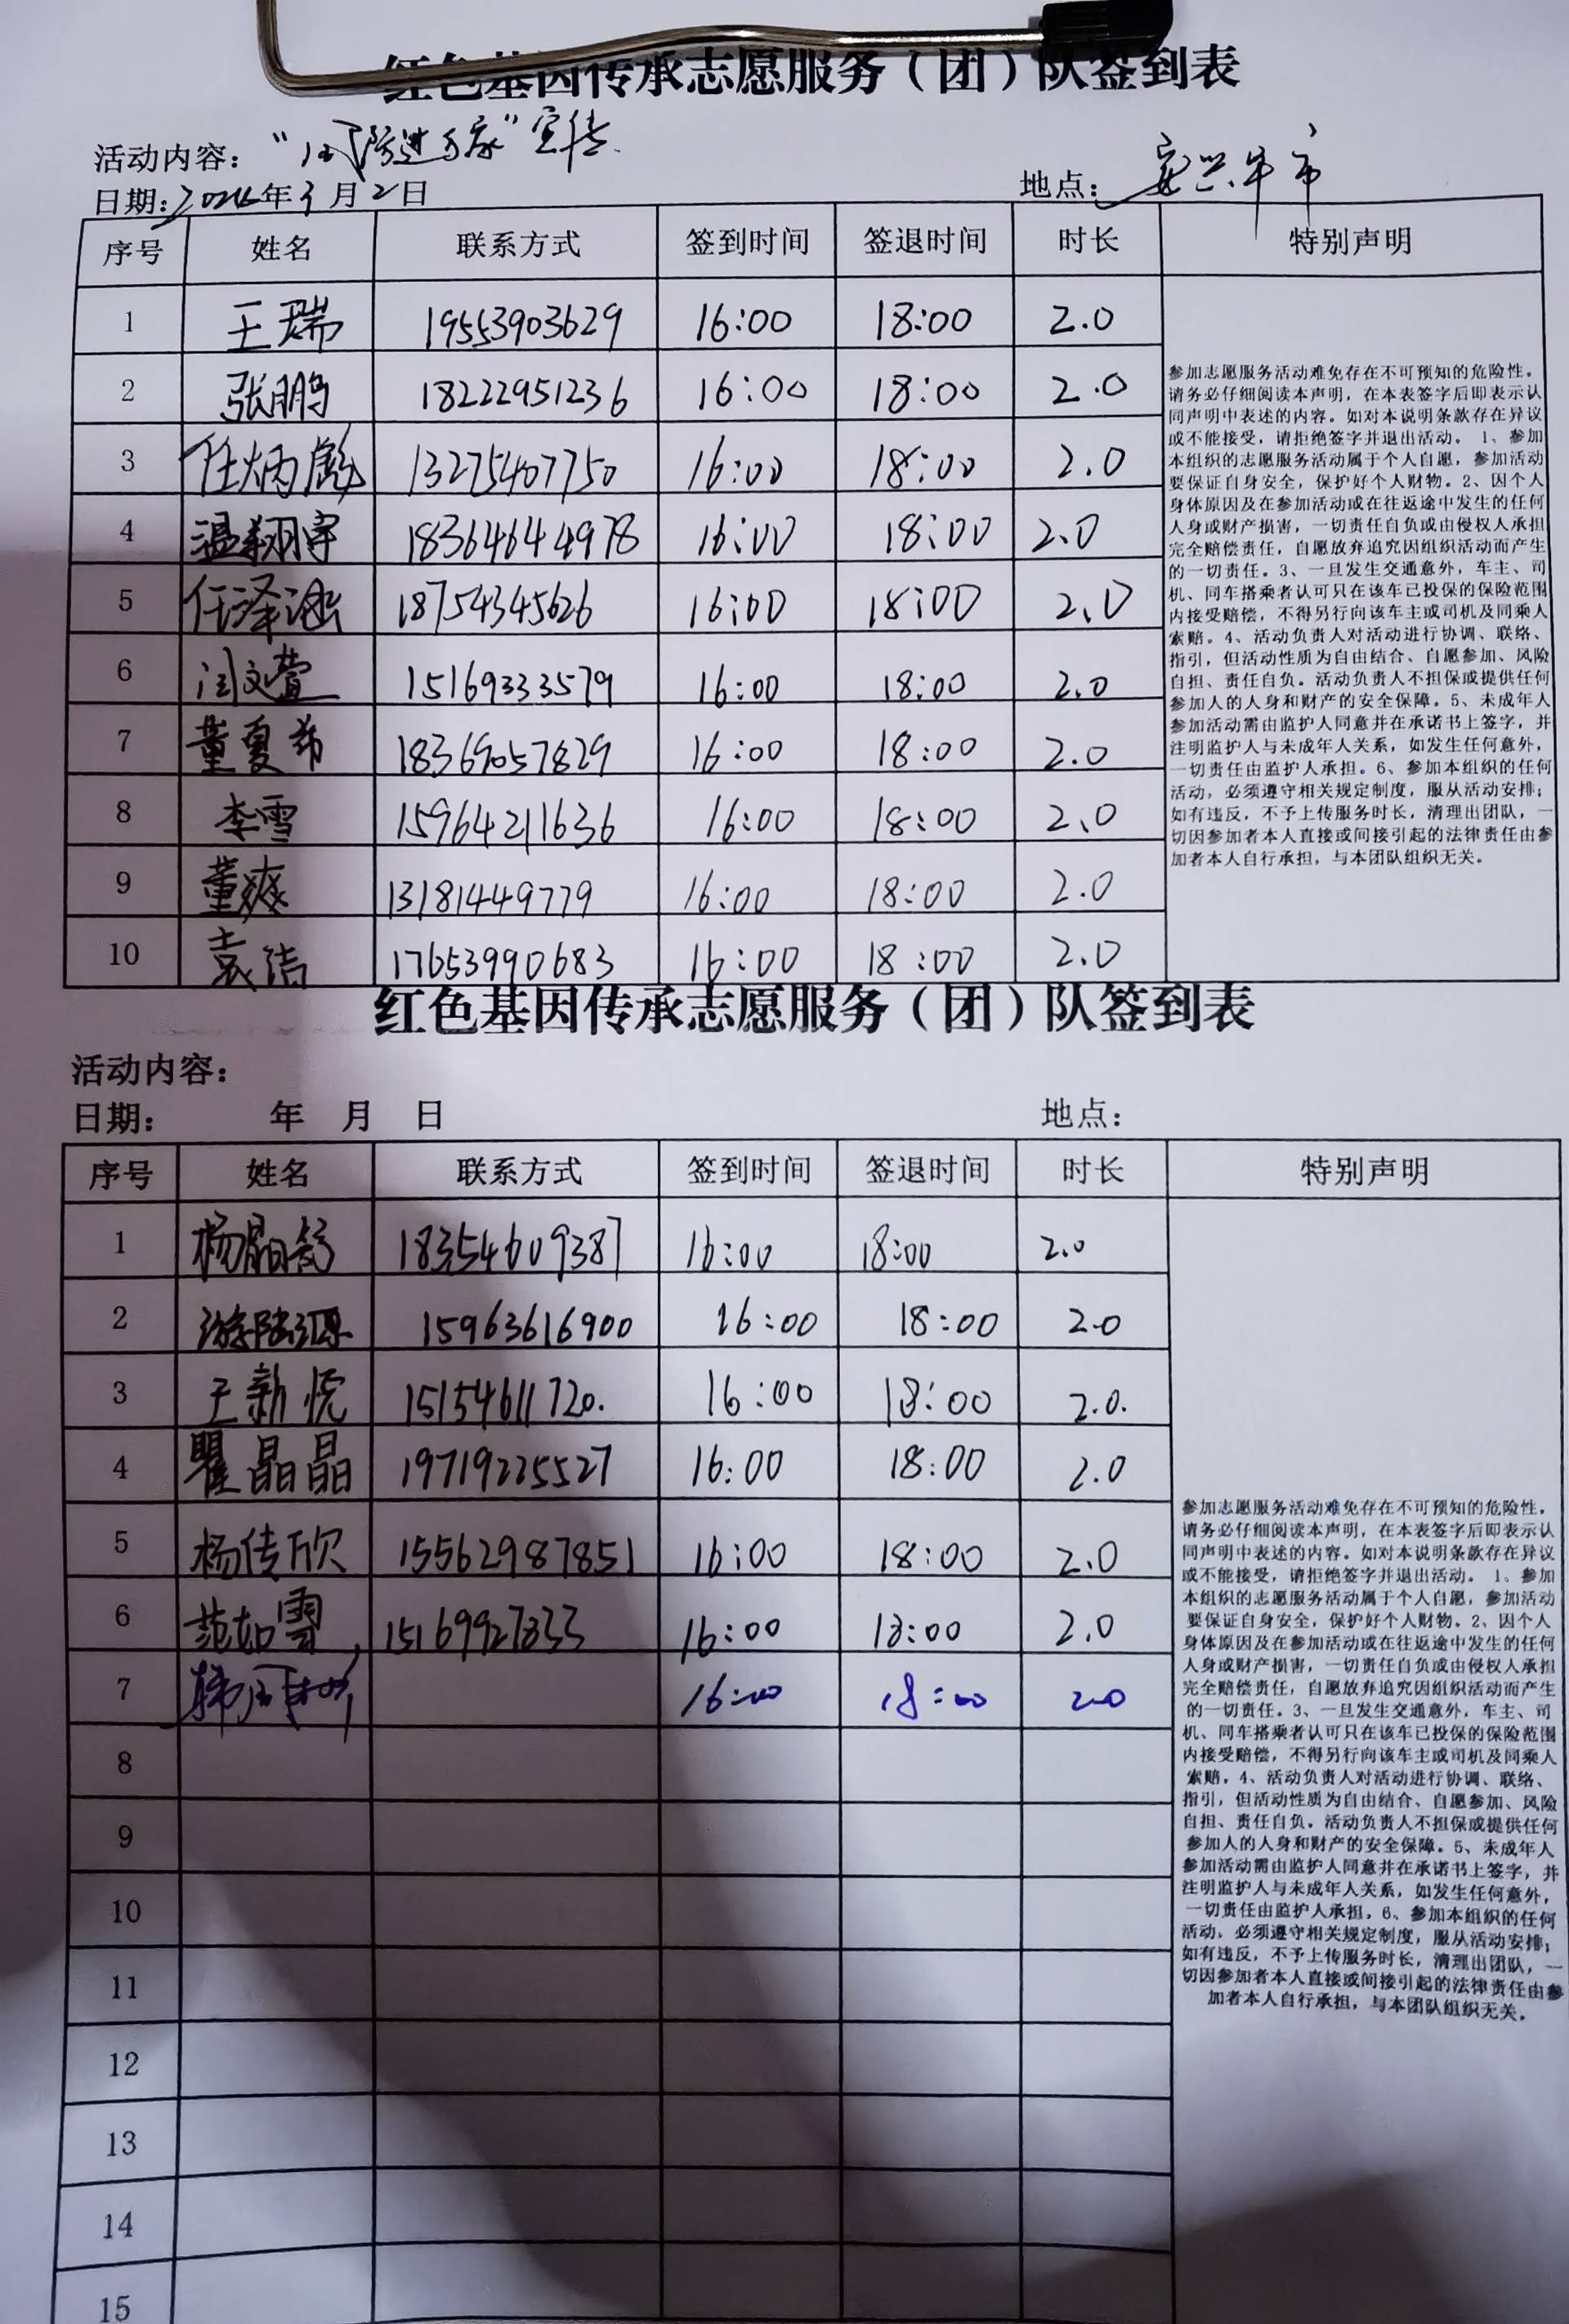 红色基因传承志愿服务（团）队签到表
活动内容：“国防进万家”宣传
日期：2024年3月2日 地点：
序号 姓名 联系方式 签到时间 签退时间 时长 特别声明
1 王瑞 19553903629 16:00 18:00 2.0
2 张鹏 18222951236 16:00 18:00 2.0
3 任炳彪 13275407750 16:00 18:00 2.0
4 温翔宇 18364644978 16:00 18:00 2.0
5 任泽涵 18754345626 16:00 18:00 2.0
6 闫文萱 15169333579 16:00 18:00 2.0
7 董夏希 18369057829 16:00 18:00 2.0
8 李雪 15964211636 16:00 18:00 2.0
9 董爽 13181449779 16:00 18:00 2.0
10 袁洁 17653990683 16:00 18:00 2.0
参加志愿服务活动难免存在不可预知的危险性。
请务必仔细阅读本声明，在本表签字后即表示认
同声明中表述的内容。如对本说明条款存在异议
或不能接受，请拒绝签字并退出活动。 1、参加
本组织的志愿服务活动属于个人自愿，参加活动
要保证自身安全，保护好个人财物。2、因个人
身体原因及在参加活动或在往返途中发生的任何
人身或财产损害，一切责任自负或由侵权人承担
完全赔偿责任，自愿放弃追究因组织活动而产生
的一切责任。3、一旦发生交通意外，车主、司
机、同车搭乘者认可只在该车已投保的保险范围
内接受赔偿，不得另行向该车主或司机及同乘人
索赔。4、活动负责人对活动进行协调、联络、
指引，但活动性质为自由结合、自愿参加、风险
自担、责任自负。活动负责人不担保或提供任何
参加人的人身和财产的安全保障。5、未成年人
参加活动需由监护人同意并在承诺书上签字，并
注明监护人与未成年人关系，如发生任何意外，
一切责任由监护人承担。6、参加本组织的任何
活动，必须遵守相关规定制度，服从活动安排；
如有违反，不予上传服务时长，清理出团队，一
切因参加者本人直接或间接引起的法律责任由参
加者本人自行承担，与本团队组织无关。
红色基因传承志愿服务（团）队签到表
活动内容：
日期： 年 月 日 地点：
序号 姓名 联系方式 签到时间 签退时间 时长 特别声明
1 杨晶舒 18354609387 16:00 18:00 2.0
2 15963616900 16:00 18:00 2.0
3 王新悦 15154611720. 16:00 18:00 2.0.
4 瞿晶晶 19719225527 16:00 18:00 2.0
5 杨传欣 15562987851 16:00 18:00 2.0
6 范如雪 15169927833 16:00 18:00 2.0
7 16:00 18:00 2.0
8
9
10
11
12
13
14
15
参加志愿服务活动难免存在不可预知的危险性。
请务必仔细阅读本声明，在本表签字后即表示认
同声明中表述的内容。如对本说明条款存在异议
或不能接受，请拒绝签字并退出活动。 1、参加
本组织的志愿服务活动属于个人自愿，参加活动
要保证自身安全，保护好个人财物。2、因个人
身体原因及在参加活动或在往返途中发生的任何
人身或财产损害，一切责任自负或由侵权人承担
完全赔偿责任，自愿放弃追究因组织活动而产生
的一切责任。3、一旦发生交通意外，车主、司
机、同车搭乘者认可只在该车已投保的保险范围
内接受赔偿，不得另行向该车主或司机及同乘人
索赔。4、活动负责人对活动进行协调、联络、
指引，但活动性质为自由结合、自愿参加、风险
自担、责任自负。活动负责人不担保或提供任何
参加人的人身和财产的安全保障。5、未成年人
参加活动需由监护人同意并在承诺书上签字，并
注明监护人与未成年人关系，如发生任何意外，
一切责任由监护人承担。6、参加本组织的任何
活动，必须遵守相关规定制度，服从活动安排；
如有违反，不予上传服务时长，清理出团队，一
切因参加者本人直接或间接引起的法律责任由参
加者本人自行承担，与本团队组织无关。